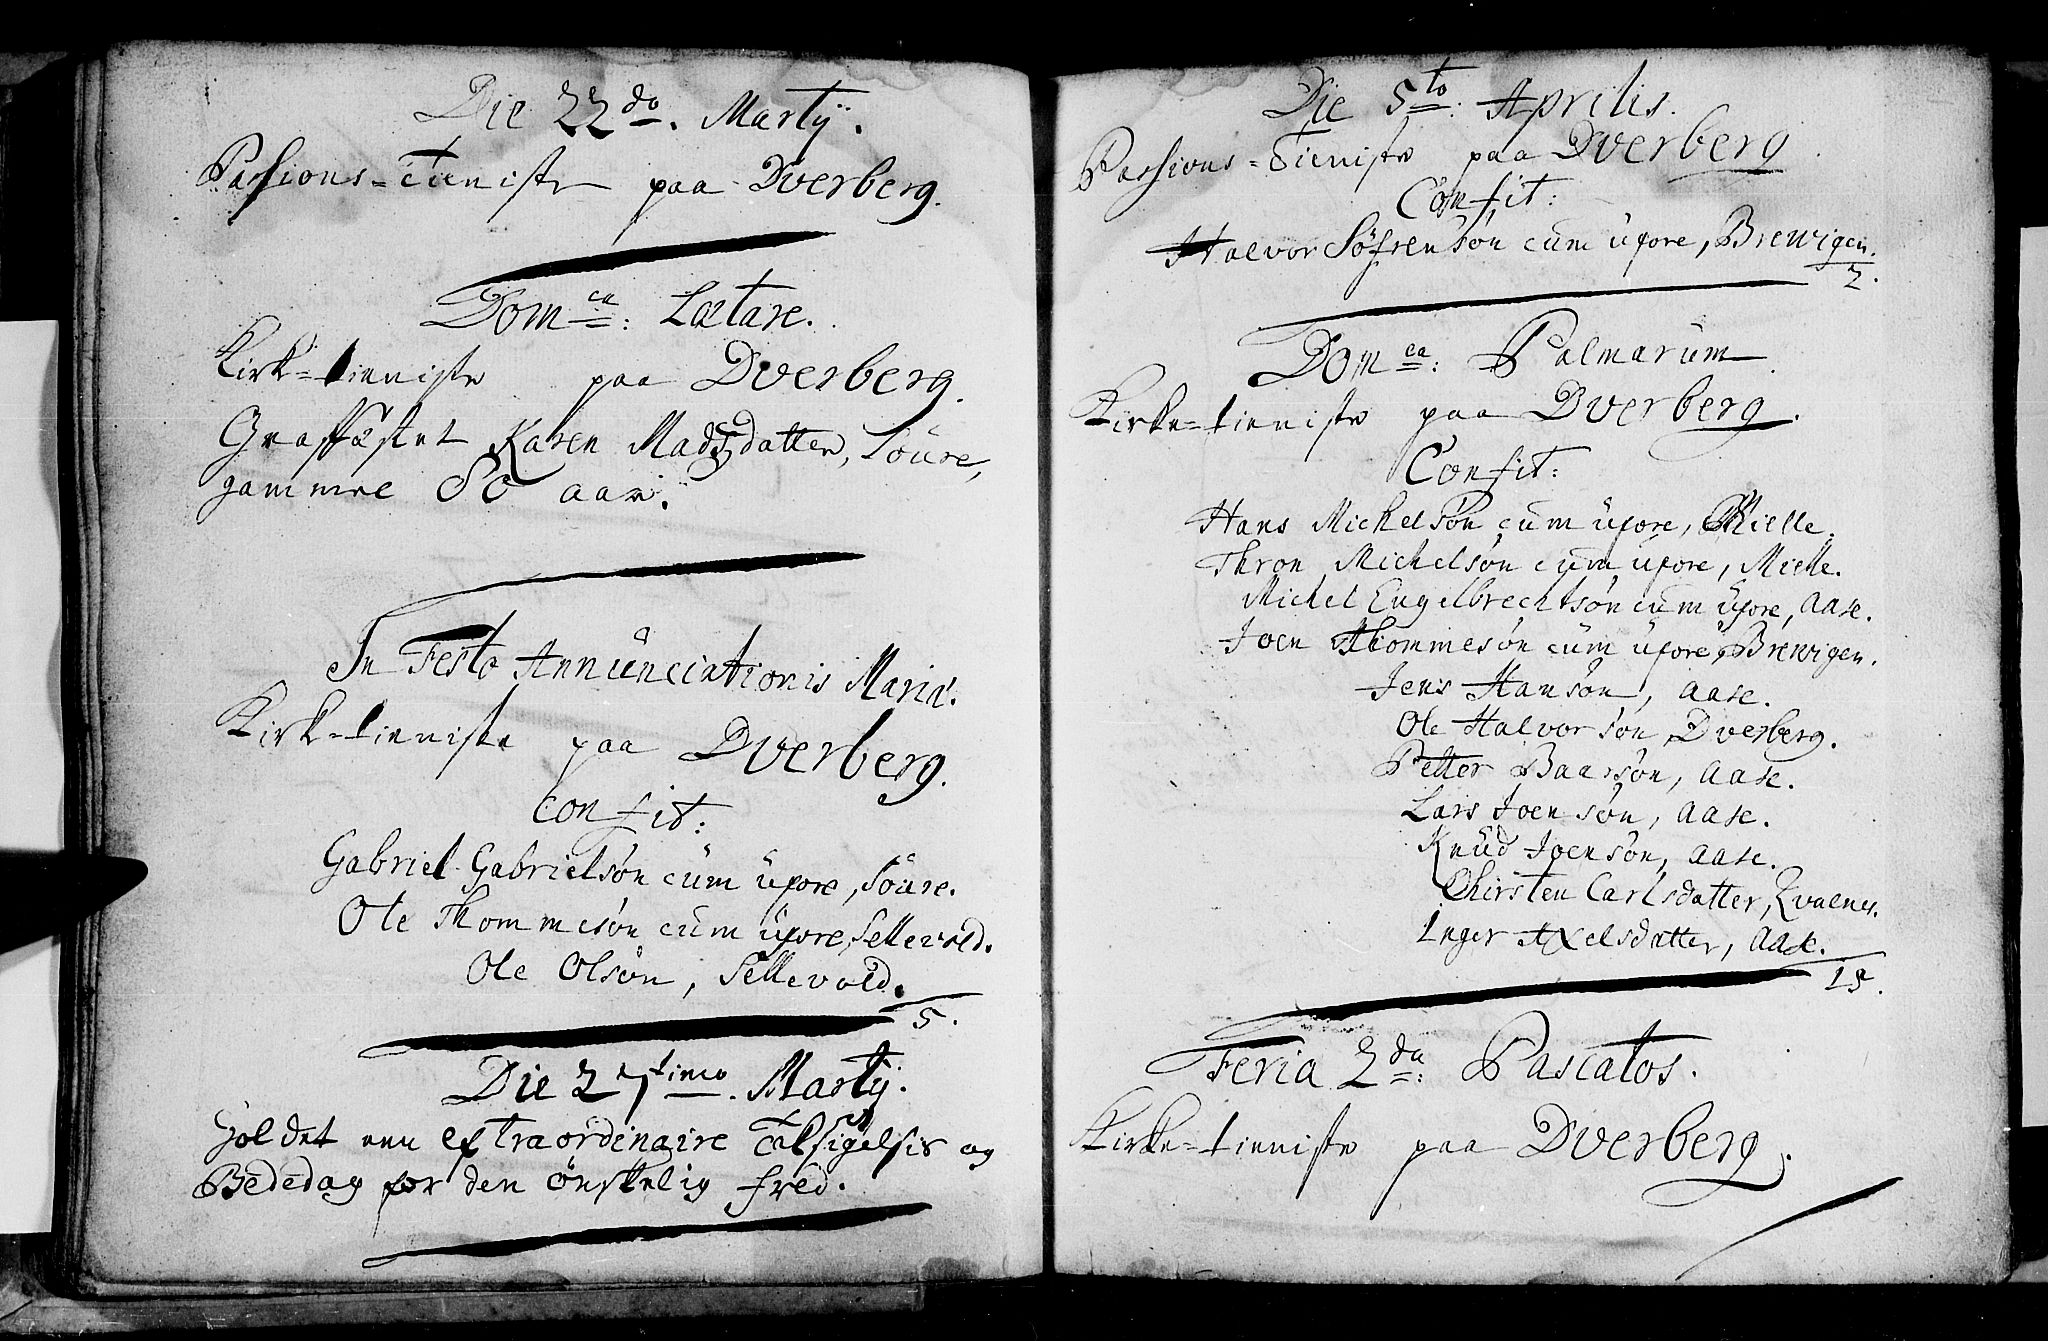 Die 22do. Martÿ.
Passions-Tieniste paa Dverberg.
Domca: Lætare.
Kirk-tieniste paa Dverberg.
Graffæstet Karen Madsdatter, Söure,
gammel 80 aar.
In Festo Annünciationis Mariæ.
Kirk-tieniste paa Dverberg.
Confit:
Gabriel Gabrielsøn cüm üxore, Söure.
Ole Thommesøn cüm üxore, Sellevold.
Ole Olsøn, Sellevold.
5.
Die 27timo. Martÿ.
Holdet een extraordinaire Taksigelsis og
Bededag for den ønskelig fred.
Die 5to: Aprilis.
Passions-Tieniste paa Dverberg.
Confit:
Halvor Søfrensøn cum üxore, Brewigen.
2.
Domca: Palmarum.
Kirke-tieniste paa Dverberg.
Confit:
Hans Michelsøn cum üxore, Mielle.
Thron Michelsøn cum üxore, Mielle.
Michel Engelbrechtsøn cum üxore, Aase.
Joen Thommesøn cüm üxore, Brewigen.
Jens Hansøn, Aase.
Ole Halvorsøn, Dverberg.
Petter Baarsøn, Aase.
Lars Joensøn, Aase.
Knüd Joensøn, Aase.
Chirsten Carlsdatter, Qvalnes.
Inger Axelsdatter, Aase.
15.
Feria 2da: Pascatos.
Kirke-tieniste paa Dverberg.